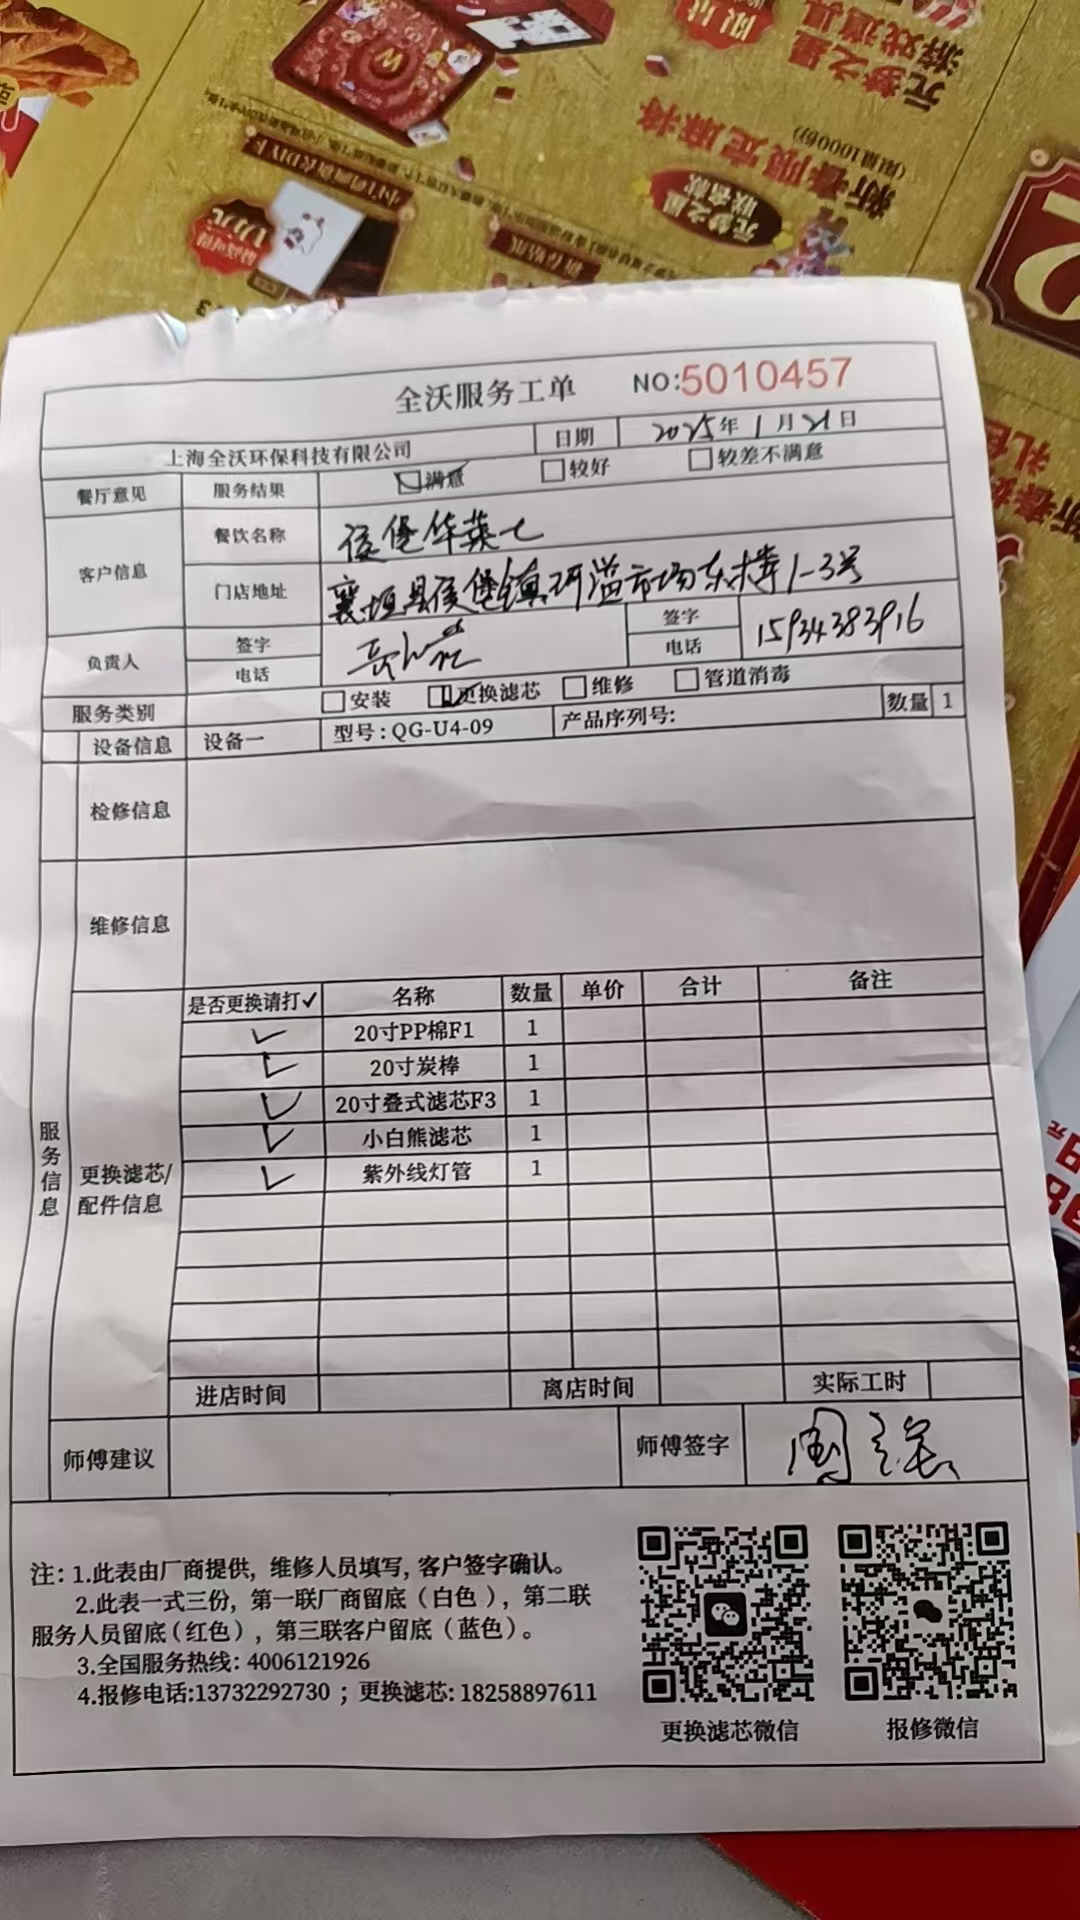 元梦之星
游戏道具
新春限定麻将
(限量1000份)
元梦之星
联名款
全沃服务工单 NO:5010457
上海全沃环保科技有限公司 日期 2025年1月21日
餐厅意见 服务结果 满意 较好 较差不满意
客户信息 餐饮名称 侯堡华莱士
门店地址 襄垣县侯堡镇河溢市场东楼1-3号
负责人 签字 签字
电话 电话 15934383916
服务类别 安装 更换滤芯 维修 管道消毒
设备信息 设备一 型号:QG-U4-09 产品序列号: 数量 1
检修信息
维修信息
服务信息
更换滤芯/配件信息
是否更换请打✓ 名称 数量 单价 合计 备注
✓ 20寸PP棉F1 1
✓ 20寸炭棒 1
✓ 20寸叠式滤芯F3 1
✓ 小白熊滤芯 1
✓ 紫外线灯管 1
进店时间 离店时间 实际工时
师傅建议 师傅签字
注: 1.此表由厂商提供, 维修人员填写, 客户签字确认。
2.此表一式三份, 第一联厂商留底(白色), 第二联
服务人员留底(红色), 第三联客户留底(蓝色)。
3.全国服务热线: 4006121926
4.报修电话:13732292730 ; 更换滤芯: 18258897611
更换滤芯微信 报修微信